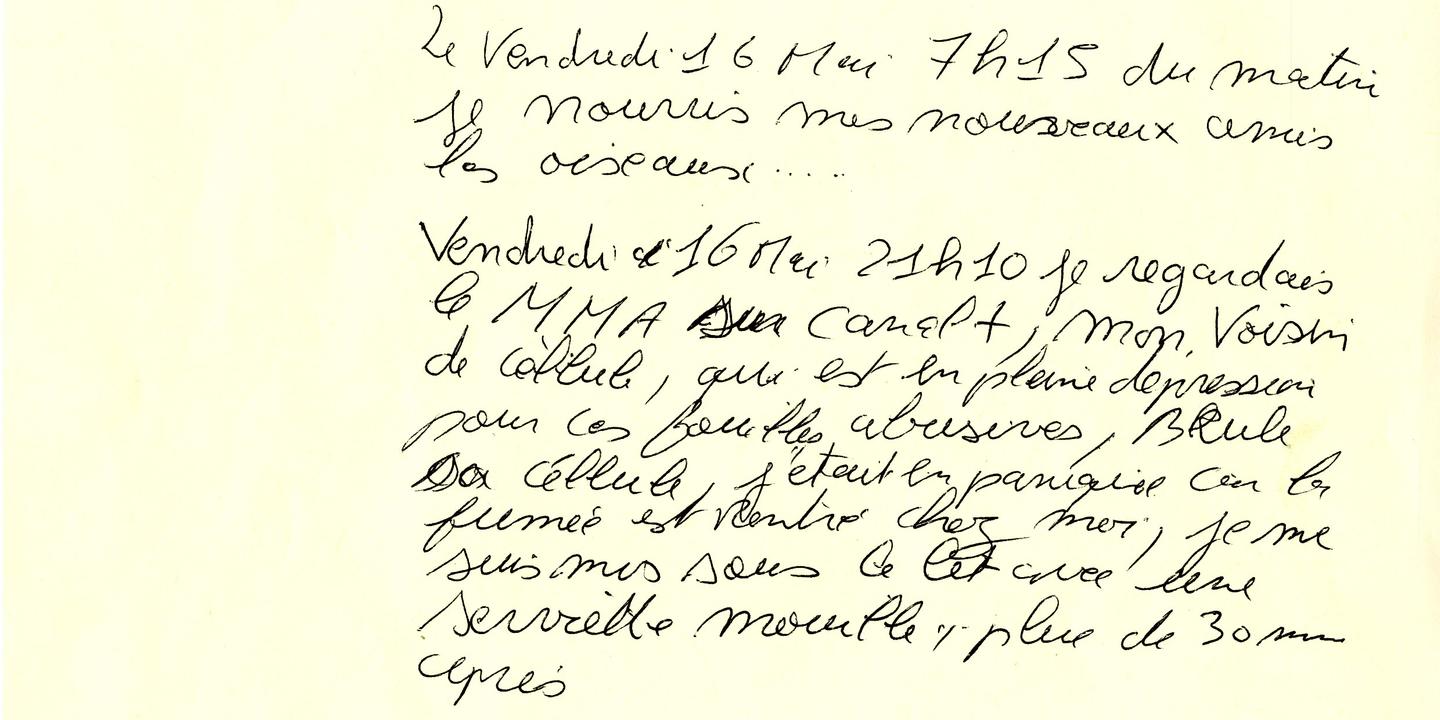 Le Vendredi 16 Mai 7h15 du matin
je nourris mes nouveaux amis
les oiseaux.....
Vendredi 16 Mai 21h10 je regardais
le MMA sur Canal+, mon Voisin
de céllule, qui est en pleine depression
pour ces fouilles abusives, Brule
sa céllule, j'était en panique car la
fumée est rentré chez moi, je me
suis mis sous le lit avec une
serviètte mouillé, plus de 30 mn
après